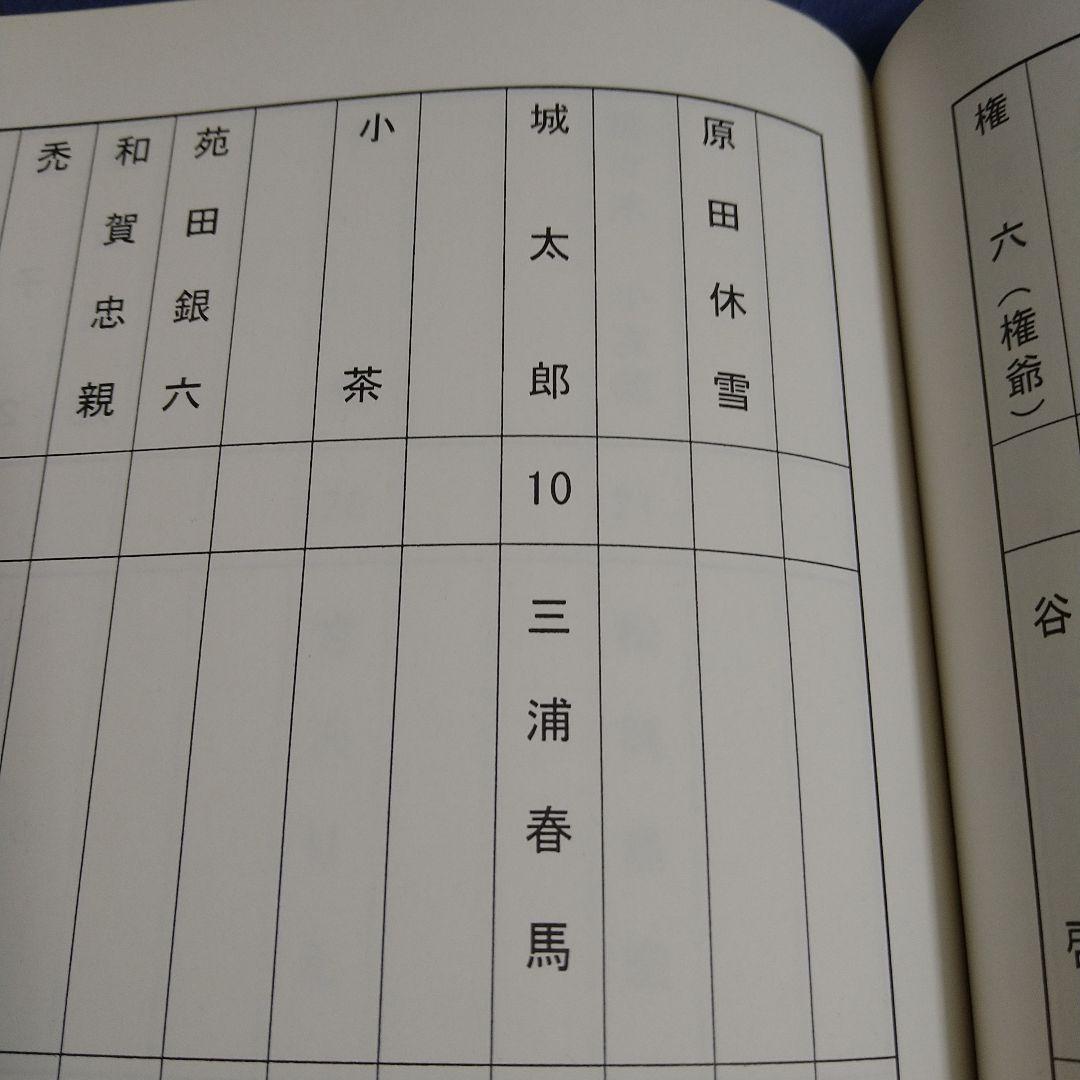 権六(権爺)
谷
原田休雪
城太郎 10 三浦春馬
小茶
苑田銀六
和賀忠親
禿